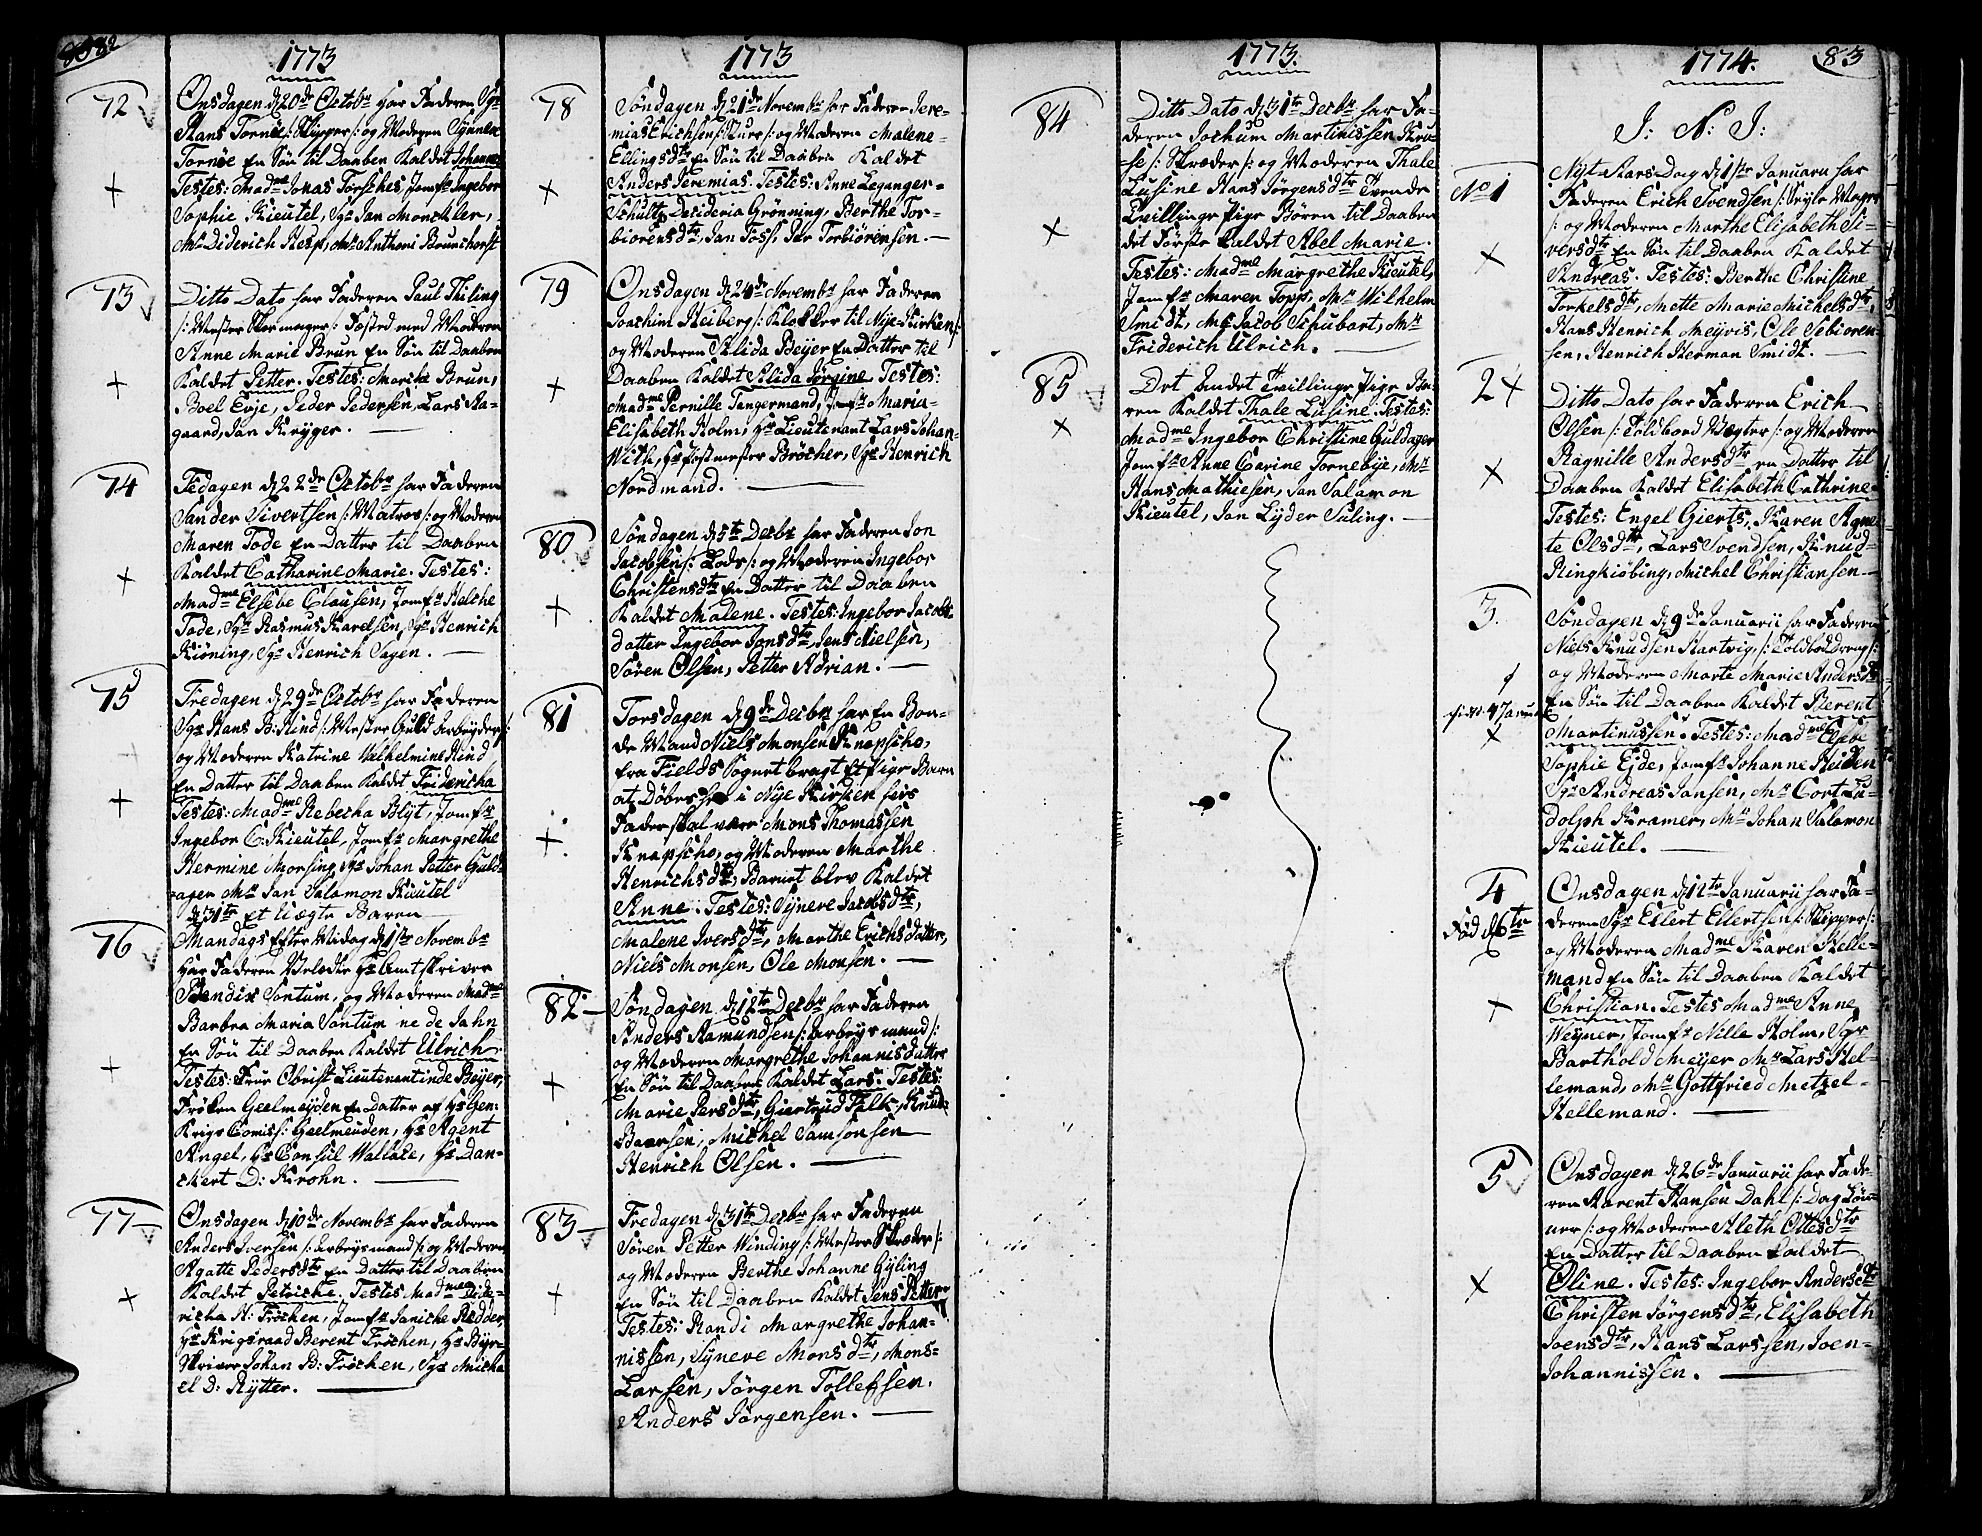 82
1773
72
Onsdagen d 20de Octobr har Faderen Sgr
Hans Tornöe /: Skipper :/ og Moderen Synnen
Tornöe En Sön til Daaben Kaldet Johannes
Testes: Madme Jonas Forsches, Jomfr Ingebor
Sophie Kieutel, Sgr Jan Monckler,
Mr Diderich Hesp, Mr Anthoni Brunchorst
73
Ditto Dato har Faderen Paul Thiling
/: Mester Skomager :/ Fæsted med Moderen
Anne Marie Brun En Sön til Daaben
Kaldet Petter. Testes: Marichr Brun,
Boel Evje, Peder Pedersen, Lars Aa-
gaard, Jan Krÿger.
74
Fredagen d 22de Octobr har Faderen
Sander Sivertsen /: Matros :/ og Moderen
Maren Tode En Datter til Daaben
Kaldet Catharine Marie. Testes:
Madme Elsebe Clausen, Jomfr Melche
Tode, Sgr Rasmus Karelsen, Sgr Henrich
Kiöning, Sgr Henrich Sagen.
75
Fredagen d 29de Octobr har Faderen
Sgr Hans B: Hind /: Mester Guld Arbeyder :/
og Moderen Katrine Vilhelmine Hind
En Datter til Daaben Kaldet Fridericha
Testes: Madme Rebecha Blÿt, Jomfr
Ingebor C: Kieutel, Jomfr Margrethe
Hermine Morsing, Sgr Johan Petter Guld-
ager Mr Jan Salamon Kieutel
d 31te Et Uægte Baren
76
Mandags Efter Midag d 1ste Novembr
Har Faderen Velædle Hr Amtskriver
Bendix Sontum, og Moderen Madme
Barbra Maria Sontum ne de Jahn
En Sön til Daaben Kaldet Ulrich.
Testes: Frue Obrist Lieutenantinde Beÿer,
Fröken Geelmeÿden En Datter af Hr Gen:
Krigs Comiss: Geelmeuden, Hr Agent
Angel, Hr Consul Wallace, Hr Dan-
ckert D: Krohn.
77
Onsdagen d 10de Novembr har Faderen
Anders Iversen /: Arbeysmand :/ og Moderen
Agatte Pedersdtr En Datter til Daaben
Kaldet Petriche. Testes Madme Dide-
richa N: Fröchen, Jomfr Janiche Rödder,
Hr Krigsraad Berent Fröchen, Hr Bÿe-
Skriver Johan B: Fröchen, Sgr Micha-
el D: Rÿtter.
1773
78
Söndagen d 21de Novembr har Faderen Jere-
mias Erichsen /: Kurr :/ og Moderen Malene
Ellingsdtr En Sön til Daaben Kaldet
Anders Jeremias. Testes: Anne Leganger-
Schultz Desideria Grönning, Berthe Tor-
biörensdtr, Jan Foss, Per Torbiörensen.
79
Onsdagen d 24de Novembr har Faderen
Joachim Heiberg /: Klokker til Nÿe-Kirken :/
og Moderen Alida Beÿer En Datter til
Daaben Kaldet Alida Jörgine. Testes:
Madme Pernille Tangermand, Jomfr Maria
Elisabeth Holm, Hr Lieutenant Lars Johan
With, Hr Postmester Bröcher, Sgr Henrich
Nordmand.
80
Söndagen d 5te Decbr har Faderen Jon
Jacobsen /: Lods :/ og Moderen Ingebor
Christensdtr En Datter til Daaben
Kaldet Malene. Testes: Ingebor Jacobs-
datter Ingebor Jonsdtr, Jens Nielsen,
Sören Olsen, Petter Adrian.
81
Torsdagen d 9de Decbr har En Bon-
de Mand Niels Monsen Knapscho,
fra Fields Sognet bragt Et Pige Barn
at Döbes her i Nÿe Kirken hvis
Fader skal være Mons Thomassen
Knapscho, og Moderen Marthe
Henrichsdtr, Barnet blev Kaldet
Anne. Testes: Sÿnere Jacobsdtr,
Malene Iversdtr, Marthe Erichsdatter,
Niels Monsen, Ole Monsen.
82
Söndagen d 12te Decbr har Faderen
Anders Aamundsen /: Arbeysmand :/
og Moderen Margrethe Johannisdatter
En Sön til Daaben Kaldet Lars. Testes:
Marie Persdtr, Giertrud Falk, Knud
Baarsen, Michel Samsonsen
Henrich Olsen.
83
Fredagen d 31te Decbr har Faderen
Sören Petter Winding /: Mester Skræder :/
og Moderen Berthe Johanne Gÿling
En Sön til Daaben Kaldet Jens Petter
Testes: Randi Margrethe Johan-
nissen, Sÿneve Monsdtr, Mons
Larsen, Jörgen Tollefsen.
Anders Jörgensen.
1773.
84
Ditto Dato d 31te Decbr har Fa-
deren Jochum Martinissen Kro-
se /: Skræder :/ og Moderen Thale
Lusine Hans Jörgensdtr Tvende
Tvillinge Pige Bören til Daaben
det Förste Kaldet Abel Marie.
Testes: Madme Margrethe Kieutel,
Jomfr Maren Topp, Mr Wilhelm
Smidt, Mr Jacob Schubart, Mr
Friderich Ulrich.
85
Det Andet Tvillinge Pige Ba-
ren Kaldet Thale Lusine. Testes:
Madme Ingebor Christine Guldager
Jomfr Anne Carine Tornebÿe, Mr
Hans Mathiesen, Jan Salamon
Kieutel, Jan Lÿder Süling.
1774. 83
J: N: J:
No 1
Nÿt Aars Dag d 1ste Januarii har
Faderen Erich Svendsen /: Seyle Mager
:/ og Moderen Marthe Elisabeth Si-
versdtr En Sön til Daaben Kaldet
Andreas. Testes: Berthe Christine
Torkelsdtr, Mette Marie Michelsdtr,
Hans Henrich Meÿvis, Ole Sebioren-
sen, Henrich Herman Smidt.
2
Ditto Dato har Faderen Erich
Olsen /: Toldbord Vægter :/ og Moderen
Ragnille Andersdtr en Datter til
Daaben Kaldet Elisabeth Cathrine
Testes: Engel Gierts, Karen Agne-
te Olsdtr, Lars Svendsen, Knud
Ringkiöbing, Michel Christiansen
3.
Söndagen d 9de Januarii har Faderen
Niels Knudsen Hartvig, /: Toldbod Dreng :/
og Moderen Marte Marie Andersdtr
En Sön til Daaben Kaldet Berent
Martinussen. Testes: Madme Elsebe
Sophie Eide, Jomfr Johanne Heiden
Sgr Andreas Jansen, Mr Cort Lu-
dolph Kramer, Mr Johan Salamon
Kieutel.
4
Fød d 6te
Onsdagen d 12te Januarii har Fa-
deren Sgr Eilert Eilertsen /: Skipper :/
og Moderen Madme Karen Helle-
mand En Sön til Daaben Kaldet
Christian. Testes Madme Anne
Weÿner, Jomfr Nille Holm, Sgr
Barthold Meÿer Mr Lars Hel-
lemand, Mr Gottfried Metzel-
Hellemand.
5
Onsdagen d 26de Januarii har Fade-
ren Aarent Hansen Dahl /: Dag Lön-
ner :/ og Moderen Aleth Ottesdtr
En Datter til Daaben Kaldet
Oline. Testes: Ingebor Andersdtr
Christen Jörgensdtr, Elisabeth
Joensdtr, Hans Larssen, Joen-
Johannissen.